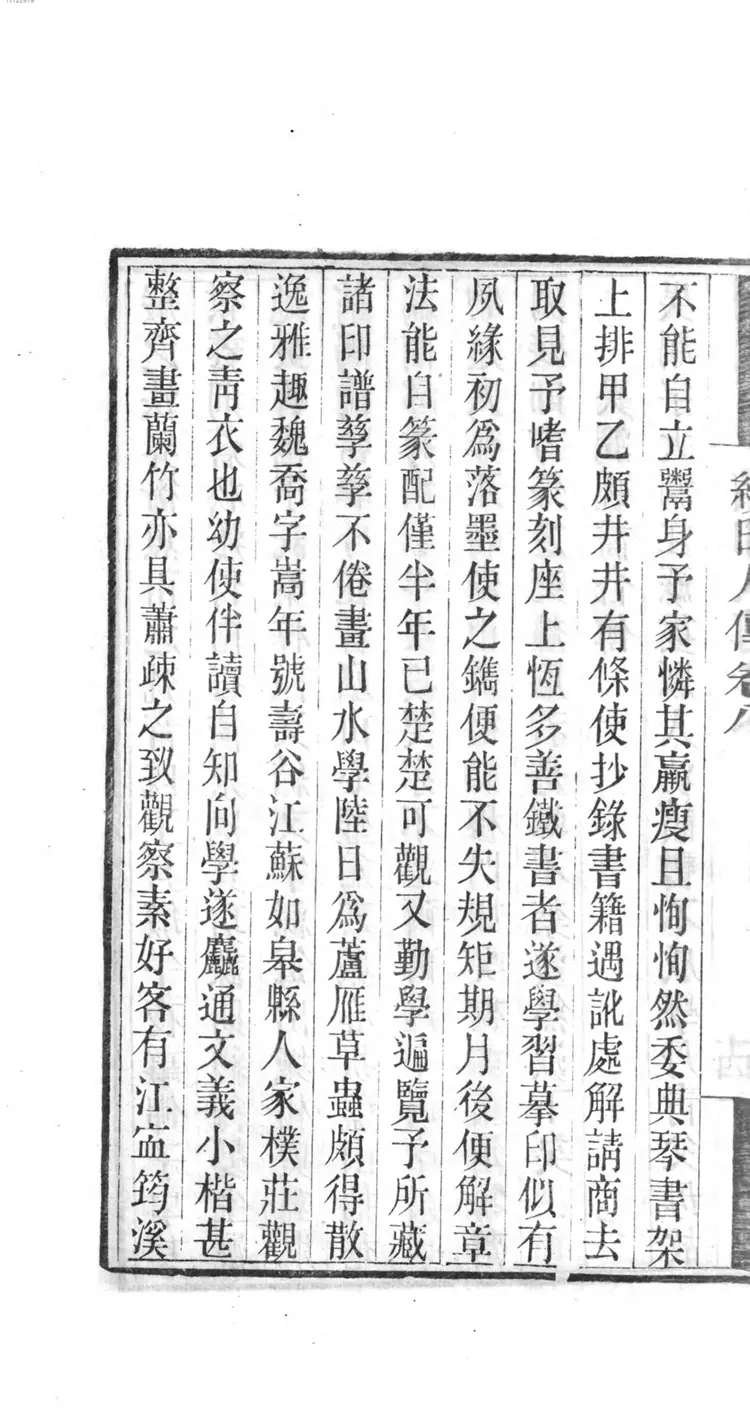 不能自立鬻身予家憐其羸瘦且恂恂然委典琴書架
上排甲乙頗井井有條使抄錄書籍遇訛處解請商去
取見予嗜篆刻座上恆多善鐵書者遂學習摹印似有
夙緣初爲落墨使之鐫便能不失規矩期月後便解章
法能自篆配僅半年已楚楚可觀又勤學遍覽予所藏
諸印譜孳孳不倦畫山水學陸日爲蘆雁草蟲頗得散
逸雅趣魏喬字嵩年號壽谷江蘇如皋縣人家樸莊觀
察之青衣也幼使伴讀自知向學遂麤通文義小楷甚
整齊畫蘭竹亦具蕭疎之致觀察素好客有江寍筠溪